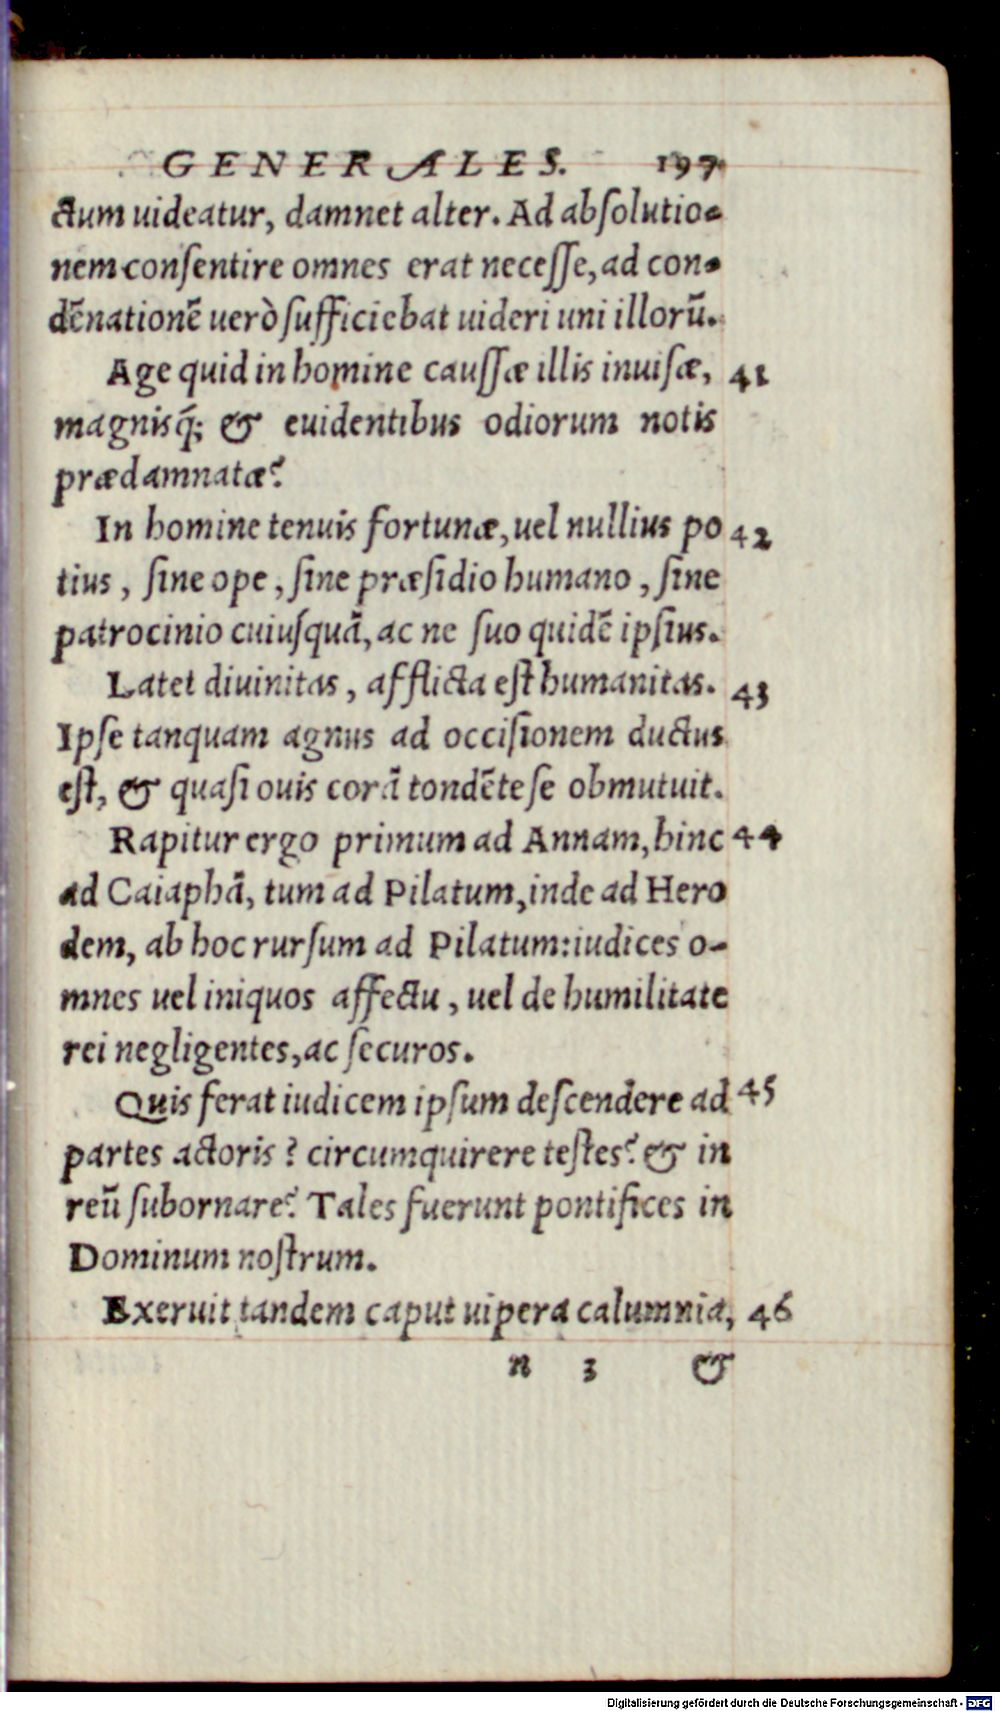 GENERALES. 197
ctum uideatur, damnet alter. Ad absolutio-
nem consentire omnes erat necesse, ad con-
dēnationē uerò sufficiebat uideri uni illorū.
Age quid in homine caussæ illis inuisæ, 41
magnisq́; & euidentibus odiorum notis
prædamnatæ?
In homine tenuis fortunæ, uel nullius po 42
tius, sine ope, sine præsidio humano, sine
patrocinio cuiusquā, ac ne suo quidē ipsius.
Latet diuinitas, afflicta est humanitas. 43
Ipse tanquam agnus ad occisionem ductus
est, & quasi ouis corā tondēte se obmutuit.
Rapitur ergo primum ad Annam, hinc 44
ad Caiaphā, tum ad Pilatum, inde ad Hero
dem, ab hoc rursum ad Pilatum: iudices o-
mnes uel iniquos affectu, uel de humilitate
rei negligentes, ac securos.
Quis ferat iudicem ipsum descendere ad 45
partes actoris? circumquirere testes? & in
reū subornare? Tales fuerunt pontifices in
Dominum nostrum.
Exeruit tandem caput uipera calumnia, 46
n 3 &
Digitalisierung gefördert durch die Deutsche Forschungsgemeinschaft - DFG